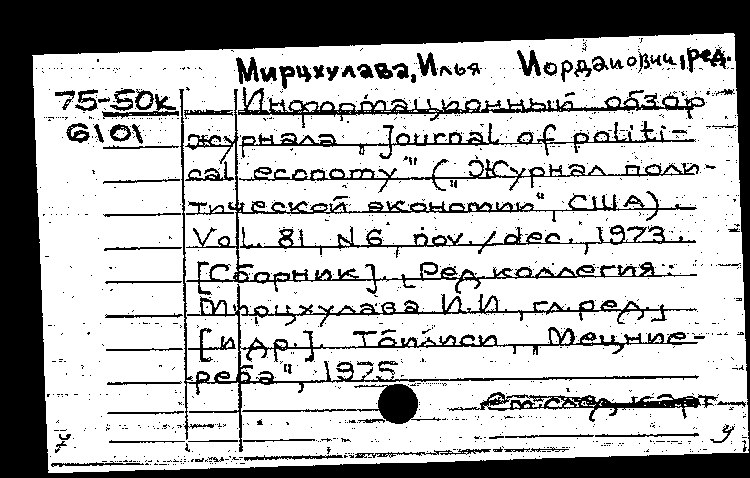 Мирцхулава, Илья Иорданович, ред.
75-50к Информационный обзор
6101 журнала „Journal of politi-
cal economy" („Журнал поли-
тической экономии", США).
Vol. 81, N 6, nov./dec., 1973.
[Сборник]. [Ред. коллегия:
Мирцхулава И.И., гл. ред.,
[и др.]. Тбилиси, „Мецние-
реба", 1975
См. след. карт